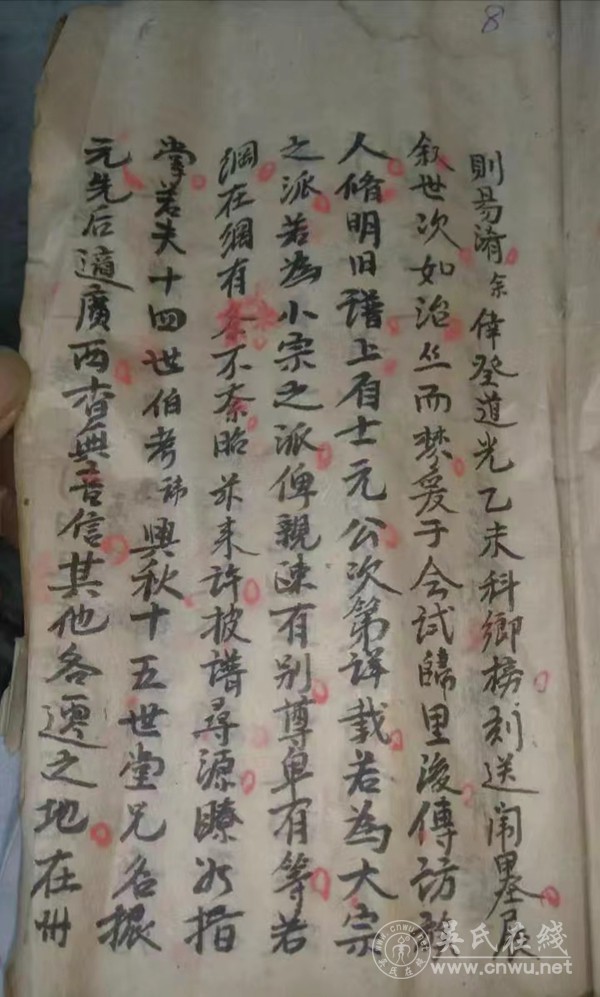 8
則易淆余倖登道光乙未科鄉榜刻送闈墨展
叙世次如治丝而棼爰于会试歸里後傳訪族
人脩明旧譜上自士元公次第详載若為大宗
之派若為小宗之派俾親疎有别尊卑有等若
綱在綱有条不紊昭兹来许披譜尋源瞭如指
掌若夫十四世伯考讳興秋十五世堂兄名振
元先后適廣西杳無音信其他各遷之地在州
吴氏在线
www.cnwu.net